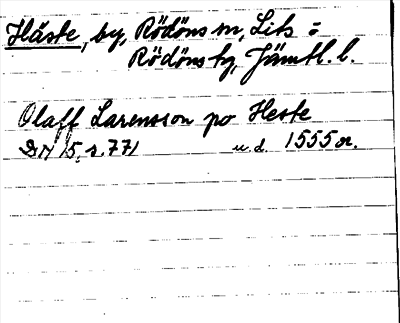 Häste, by, Rödöns sn, Lits o
Rödöns tg, Jämtl. l.
Olaff Larensson po Heste
DN 15, s. 771 u.d. 1555 or.